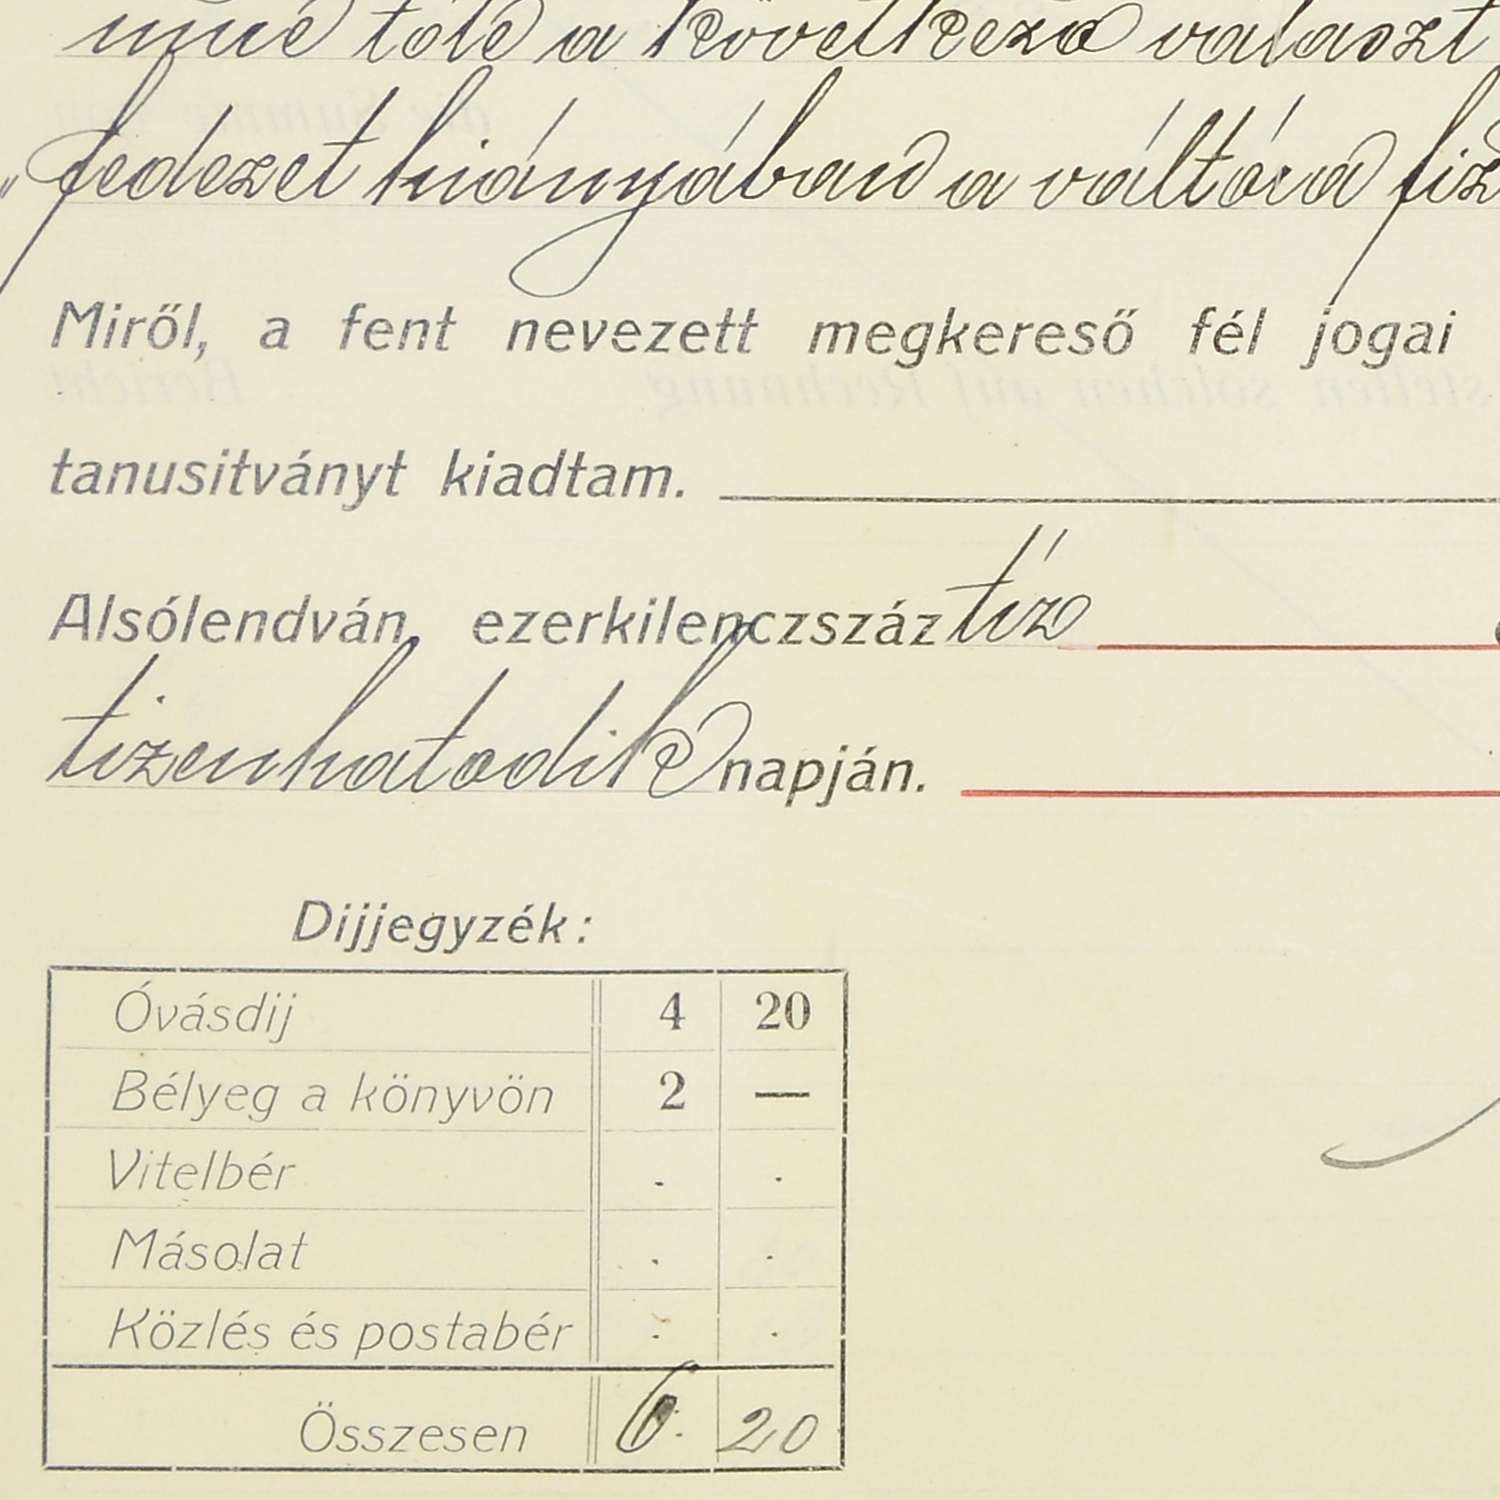 tőle a következő választ
„fedezet hiányában a váltóra fiz
Miről, a fent nevezett megkereső fél jogai
tanusitványt kiadtam.
Alsólendván, ezerkilenczszáz tíz
tizenhatodik napján.
Dijjegyzék:
Óvásdij 4 20
Bélyeg a könyvön 2 —
Vitelbér . .
Másolat . .
Közlés és postabér . .
Összesen 6. 20